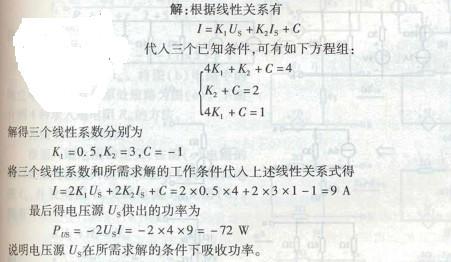 解:根据线性关系有
I=K₁U_S+K₂I_S+C
代人三个已知条件,可有如下方程组:
4K₁+K₂+C=4
K₂+C=2
4K₁+C=1
解得三个线性系数分别为
K₁=0.5,K₂=3,C=-1
将三个线性系数和所需求解的工作条件代人上述线性关系式得
I=2K₁U_S+2K₂I_S+C=2×0.5×4+2×3×1-1=9 A
最后得电压源 U_S供出的功率为
P_US=-2U_SI=-2×4×9=-72 W
说明电压源 U_S在所需求解的条件下吸收功率。